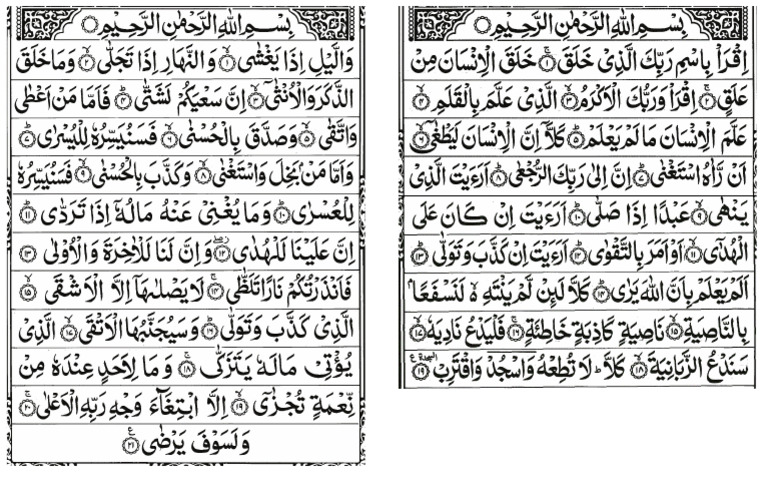 بِسْمِ اللهِ الرَّحْمٰنِ الرَّحِيْمِ ۝
اِقْرَاْ بِاسْمِ رَبِّكَ الَّذِيْ خَلَقَ ۝۱ خَلَقَ الْاِنْسَانَ مِنْ
عَلَقٍ ۝۲ اِقْرَاْ وَرَبُّكَ الْاَكْرَمُ ۝۳ الَّذِيْ عَلَّمَ بِالْقَلَمِ ۝۴
عَلَّمَ الْاِنْسَانَ مَا لَمْ يَعْلَمْ ۝۵ كَلَّاۤ اِنَّ الْاِنْسَانَ لَيَطْغٰۤى ۝۶
اَنْ رَّاٰهُ اسْتَغْنٰى ۝۷ اِنَّ اِلٰى رَبِّكَ الرُّجْعٰى ۝۸ اَرَءَيْتَ الَّذِيْ
يَنْهٰى ۝۹ عَبْدًا اِذَا صَلّٰى ۝۱۰ اَرَءَيْتَ اِنْ كَانَ عَلَى
الْهُدٰۤى ۝۱۱ اَوْ اَمَرَ بِالتَّقْوٰى ۝۱۲ اَرَءَيْتَ اِنْ كَذَّبَ وَتَوَلّٰى ۝۱۳
اَلَمْ يَعْلَمْ بِاَنَّ اللهَ يَرٰى ۝۱۴ كَلَّا لَئِنْ لَّمْ يَنْتَهِ ۙ لَنَسْفَعًۢا
بِالنَّاصِيَةِ ۝۱۵ نَاصِيَةٍ كَاذِبَةٍ خَاطِئَةٍ ۝۱۶ فَلْيَدْعُ نَادِيَهٗ ۝۱۷
سَنَدْعُ الزَّبَانِيَةَ ۝۱۸ كَلَّا ؕ لَا تُطِعْهُ وَاسْجُدْ وَاقْتَرِبْ ۝۱۹
بِسْمِ اللهِ الرَّحْمٰنِ الرَّحِيْمِ ۝
وَالَّيْلِ اِذَا يَغْشٰى ۝۱ وَالنَّهَارِ اِذَا تَجَلّٰى ۝۲ وَمَا خَلَقَ
الذَّكَرَ وَالْاُنْثٰۤى ۝۳ اِنَّ سَعْيَكُمْ لَشَتّٰى ۝۴ فَاَمَّا مَنْ اَعْطٰى
وَاتَّقٰى ۝۵ وَصَدَّقَ بِالْحُسْنٰى ۝۶ فَسَنُيَسِّرُهٗ لِلْيُسْرٰى ۝۷
وَاَمَّا مَنْۢ بَخِلَ وَاسْتَغْنٰى ۝۸ وَكَذَّبَ بِالْحُسْنٰى ۝۹ فَسَنُيَسِّرُهٗ
لِلْعُسْرٰى ۝۱۰ وَمَا يُغْنِيْ عَنْهُ مَالُهٗۤ اِذَا تَرَدّٰى ۝۱۱
اِنَّ عَلَيْنَا لَلْهُدٰى ۝۱۲ وَاِنَّ لَنَا لَلْاٰخِرَةَ وَالْاُوْلٰى ۝۱۳
فَاَنْذَرْتُكُمْ نَارًا تَلَظّٰى ۝۱۴ لَا يَصْلٰىهَاۤ اِلَّا الْاَشْقَى ۝۱۵
الَّذِيْ كَذَّبَ وَتَوَلّٰى ۝۱۶ وَسَيُجَنَّبُهَا الْاَتْقَى ۝۱۷ الَّذِيْ
يُؤْتِيْ مَالَهٗ يَتَزَكّٰى ۝۱۸ وَمَا لِاَحَدٍ عِنْدَهٗ مِنْ
نِّعْمَةٍ تُجْزٰۤى ۝۱۹ اِلَّا ابْتِغَآءَ وَجْهِ رَبِّهِ الْاَعْلٰى ۝۲۰
وَلَسَوْفَ يَرْضٰى ۝۲۱